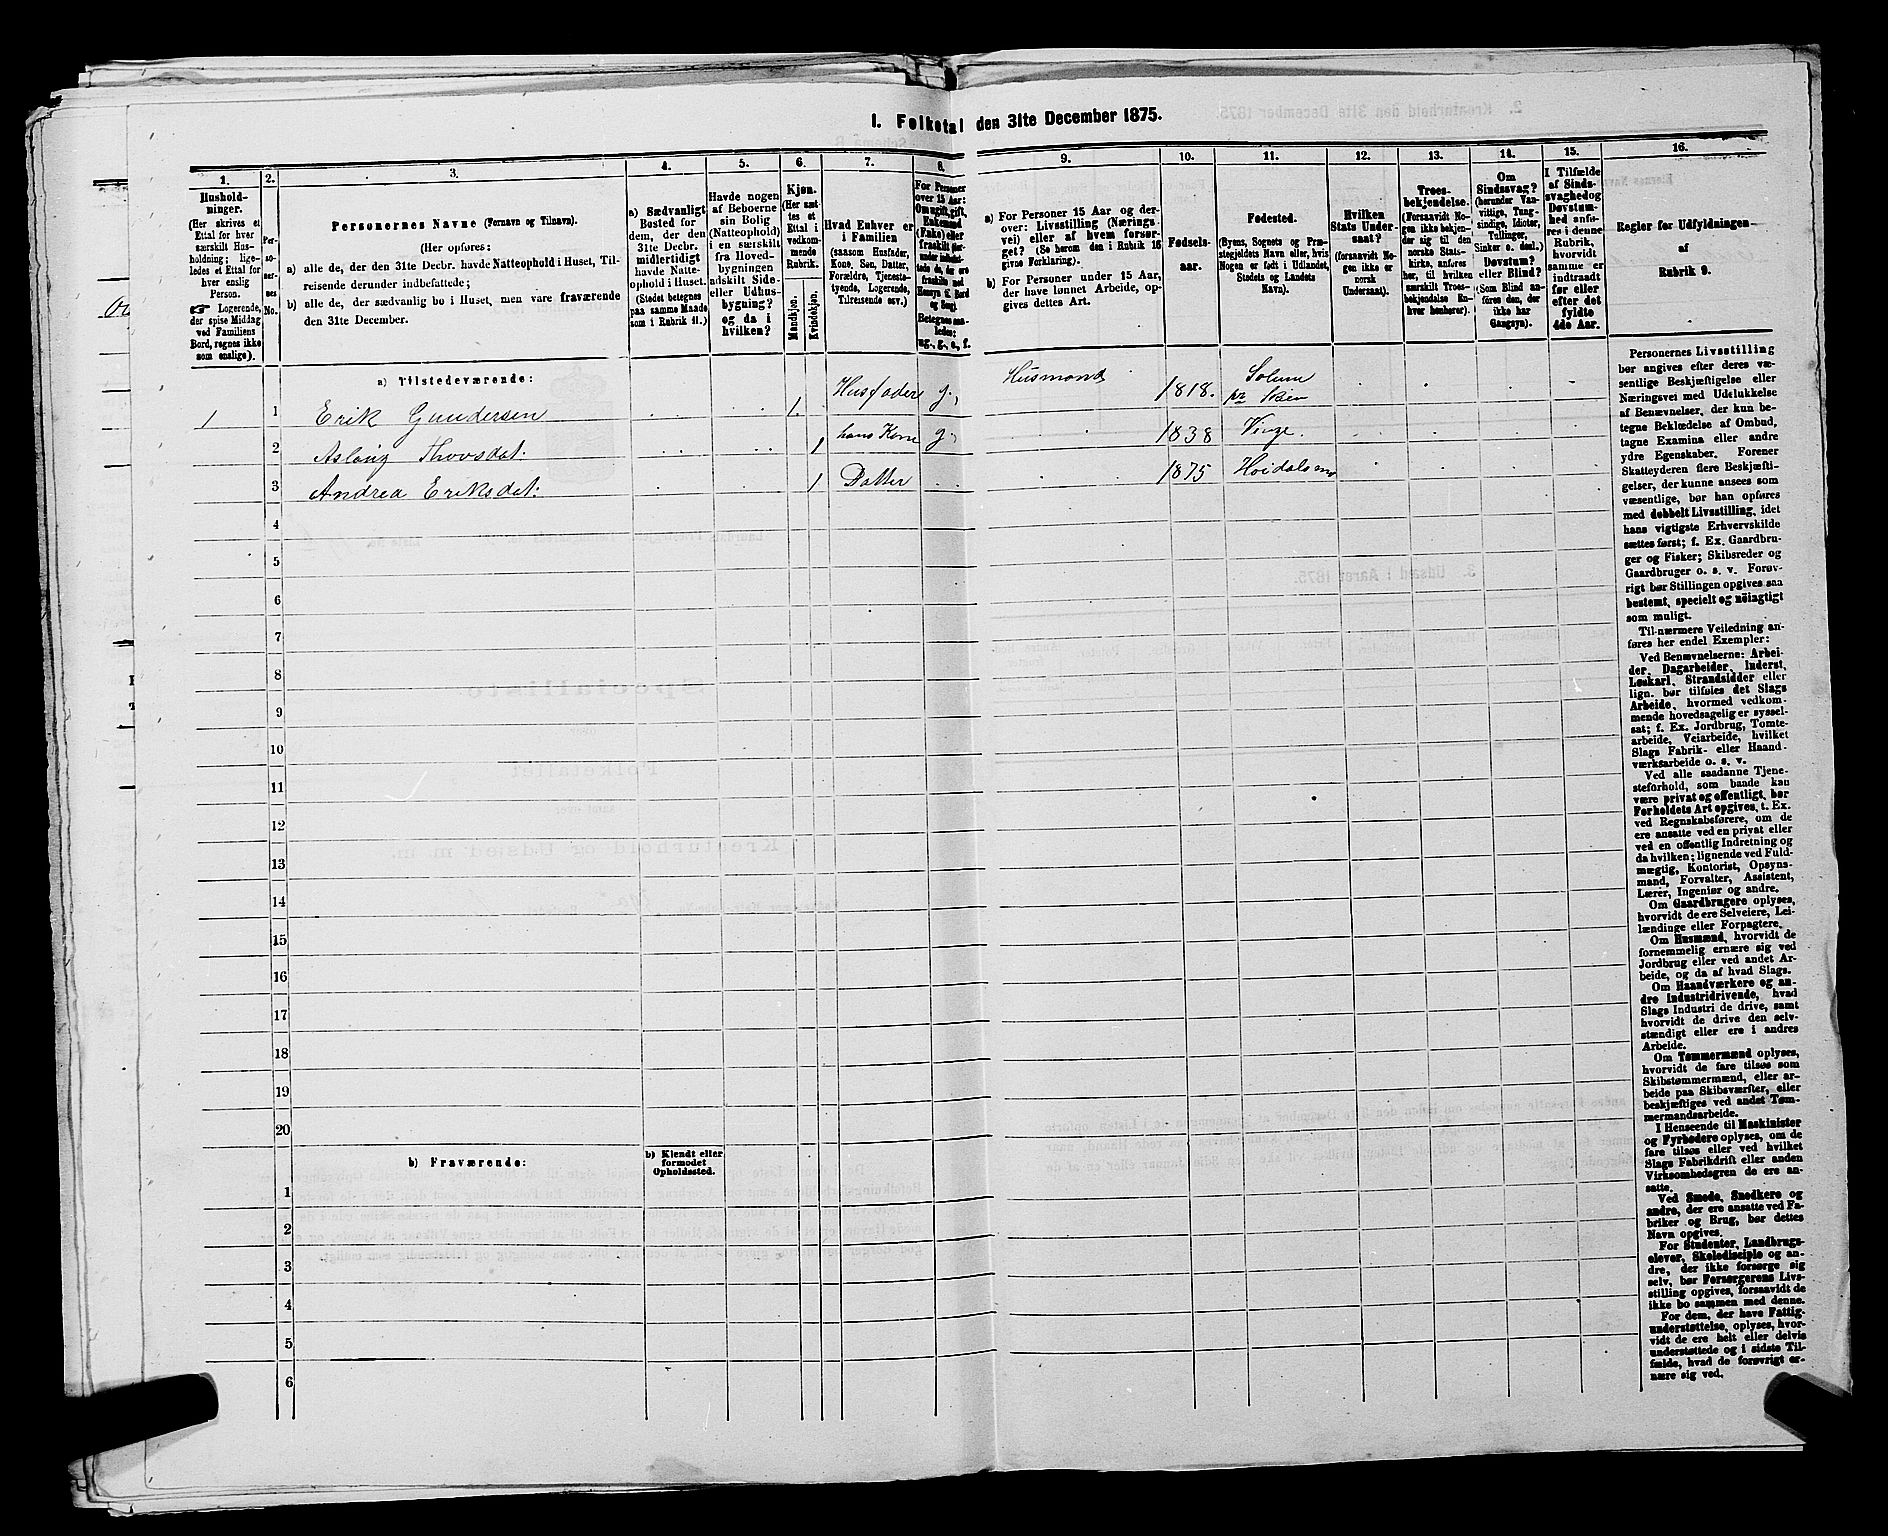 I. Folketal den 31te December 1875.
1. 2. 3. 4. 5. 6. 7. 8. 9. 10. 11. 12. 13. 14. 15. 16.
Hushold-
ninger.
(Her skrives et
Ettal for hver
særskilt Hus-
holdning; lige-
ledes et Ettal for
hver enslig
Person.
☞ Logerende,
der spise Middag
ved Familiens
Bord, regnes ikke
som enslige).
Per-
so-
ner-
nes
No.
Personernes Navne (Fornavn og Tilnavn).
(Her opføres:
a) alle de, der den 31te Decbr. havde Natteophold i Huset, Til-
reisende derunder indbefattede;
b) alle de, der sædvanlig bo i Huset, men vare fraværende
den 31te December.
a) Sædvanligt
Bosted for
dem, der den
31te Decbr.
midlertidigt
havde Natte-
ophold i Huset.
(Stedet betegnes
paa samme Maade
som i Rubrik 11.)
Havde nogen
af Beboerne
sin Bolig
(Natteophold)
i en særskilt
fra Hoved-
bygningen
adskilt Side-
eller Udhus-
bygning?
og da i
hvilken?
Kjøn.
(Her sæt-
tes et
Ettal i
vedkom-
mende
Rubrik.
Mandkjøn.
Kvindekjøn.
Hvad Enhver er
i Familien
(saasom Husfader,
Kone, Søn, Datter,
Forældre, Tjeneste-
tyende, Logerende,
Tilreisende osv.)
For Personer
over 15 Aar:
Om ugift, gift,
Enkemand
(Enke) eller
fraskilt
a) For Personer 15 Aar og der-
over: Livsstilling (Nærings-
vei) eller af hvem forsør-
get? (Se herom den i Rubrik 16
givne Forklaring).
b) For Personer under 15 Aar,
der have lønnet Arbeide, op-
gives dettes Art.
Fødsels-
aar.
Fødested.
(Byens, Sognets og Præ-
stegjeldets Navn eller, hvis
Nogen er født i Udlandet,
Stedets og Landets
Navn).
Hvilken
Stats Under-
saat?
(forsaavidt No-
gen ikke er
norsk
Undersaat).
Troes-
bekjendelse.
(Forsaavidt No-
gen ikke bekjen-
der sig til den
norske Stats-
kirke, anføres
her, til hvilken
særskilt Troes-
bekjendelse En-
hver henhører).
Om
Sindssvag?
(herunder Van-
vittige, Tung-
sindige, Idioter,
Tullinger,
Sinker o. desl.)
Døvstum?
eller Blind?
(Som Blind an-
føres den, der
ikke har
Gangsyn).
I Tilfælde
af Sinds-
svaghed og
Døvstum-
hed anfø-
res i denne
Rubrik,
hvorvidt
samme er
indtraadt
før eller
efter det
fyldte
4de Aar.
Regler for Udfyldningen
af
Rubrik 9.
a) Tilstedeværende:
1 1 Erik Gundersen 1. Husfader g. Husmand 1818. Solum pr Skien
2 Aslaug Thovsdat: 1 hans Kone g. 1838 Vinje.
3 Andrea Eriksdat: 1 Datter 1875 Hoidalsmo
4
5
6
7
8
9
10
11
12
13
14
15
16
17
18
19
20
b) Fraværende:
b) Kjendt eller
formodet
Opholdssted.
1
2
3
4
5
6
Personernes Livsstilling
bør angives efter deres væ-
sentlige Beskjæftigelse eller
Næringsvei med Udelukkelse
af Benævnelser, der kun be-
tegne Beklædelse af Ombud,
tagne Examina eller andre
ydre Egenskaber. Forener
Skatteyderen flere Beskjæfti-
gelser, der kunne ansees som
væsentlige, bør han opføres
med dobbelt Livsstilling, idet
hans vigtigste Erhvervskilde
sættes først; f. Ex. Gaardbru-
ger og Fisker; Skibsreder og
Gaardbruger o. s. v. Forøv-
rigt bør Stillingen opgives saa
bestemt, specielt og nöiagtigt
som muligt.
Til nærmere Veiledning an-
føres her endel Exempler:
Ved Benævnelserne: Arbei-
der, Dagarbeider, Inderst,
Løskarl, Strandsidder eller
lign. bør tilføies det Slags
Arbeide, hvormed vedkom-
mende hovedsagelig er syssel-
sat; f. Ex. Jordbrug, Tomte-
arbeide, Veiarbeide, hvilket
Slags Fabrik- eller Haand-
værksarbeide o. s. v.
Ved alle saadanne Tjene-
steforhold, som baade kan
være privat og offentligt, bør
Forholdets Art opgives, t. Ex.
ved Regnskabsførere, om de
ere ansatte ved en privat eller
ved en offentlig Indretning og
da hvilken; lignende ved Fuld-
mægtig, Kontorist, Opsyns-
mand, Forvalter, Assistent,
Lærer, Ingeniør og andre.
Om Gaardbrugere oplyses,
hvorvidt de ere Selveiere, Lei-
lændinge eller Forpagtere.
Om Husmænd, hvorvidt de
fornemmelig ernære sig ved
Jordbrug eller ved andet Ar-
beide, og da af hvad Slags.
Om Haandværkere og an-
dre Industridrivende, hvad
Slags Industri de drive, samt
hvorvidt de drive den selv-
stændigt eller ere i andres
Arbeide.
Om Tømmermænd oplyses,
hvorvidt de fare tilsøs som
Skibstømmermænd, eller ar-
beide paa Skibsværfter, eller
beskjæftiges ved andet Tøm-
mermandsarbeide.
I Henseende til Maskinister
og Fyrbødere oplyses, om de
fare tilsøs eller ved hvilket
Slags Fabrikdrift eller anden
Virksomhedsgren de ere an-
satte.
Ved Smede, Snedkere og
andre, der ere ansatte ved Fa-
briker og Brug, bør dettes
Navn opgives.
For Studenter, Landbrugs-
elever, Skoledisciple og an-
dre, der ikke forsørge sig
selv, bør Forsørgerens Livs-
stilling opgives, forsaavidt de
ikke bo sammen med denne.
For dem, der have Fattig-
understøttelse, oplyses, hvor-
vidt de ere helt eller delvis
understøttede og i sidste Til-
fælde, hvad de forøvrigt er-
nære sig ved.